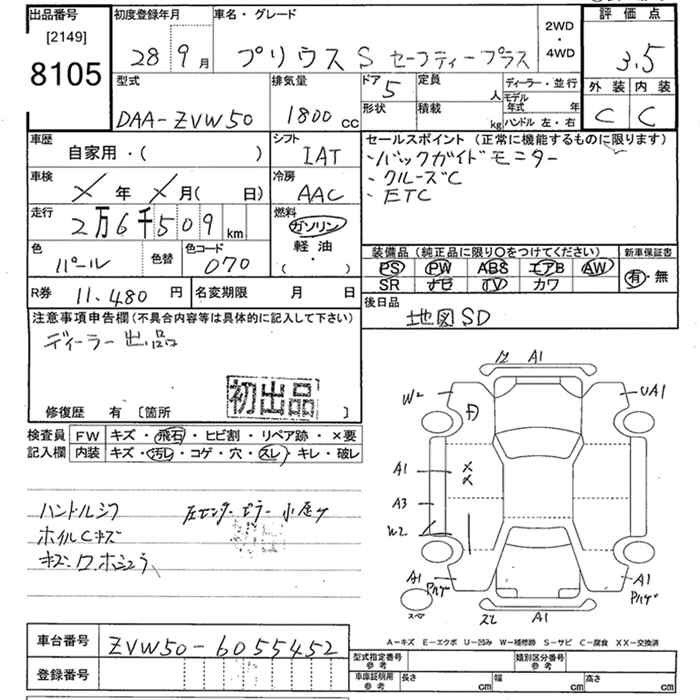 出品番号 初度登録年月 車名・グレード 2WD ・ 4WD 評価点
[2149]
8105 28 9月 プリウス S セーフティープラス 3.5
外装 内装
C C
型式 排気量 ドア 定員 ディーラー・並行
DAA-ZVW50 1800cc 5 人 モデル年式 年
形状 積載 kg ハンドル 左・右
車歴 シフト セールスポイント (正常に機能するものに限ります)
自家用・( ) IAT ・バックガイドモニター
車検 冷房 ・クルーズC
× 年 × 月( 日) AAC ・ETC
走行 燃料
2万6千509km ガソリン
軽油
( )
色 色替 色コード 装備品 (純正品に限り○をつけてください) 新車保証書
パール 070 PS PW ABS エアB AW 有・無
SR TV カワ
R券 11.480円 名変期限 月 日 後日品
地図SD
注意事項申告欄(不具合内容等は具体的に記入して下さい)
ディーラー出品
初出品
修復歴 有 [箇所 ]
検査員記入欄 FW キズ・飛石・ヒビ割・リペア跡・×要
内装 キズ・汚レ・コゲ・穴・スレ・キレ・破レ
ハンドルシワ 左センターピラー小屋ケ
ホイルCキズ
A1
W2 UA1
A1
A3
W2
A1 A1
A1
A-キズ E-エクボ U-凹み W-補修跡 S-サビ C-腐食 XX-交換済
車台番号 ZVW50-6055452
登録番号
型式指定番号 参考 類別区分番号 参考
車庫証明用 参考 長さ cm 幅 cm 高さ cm